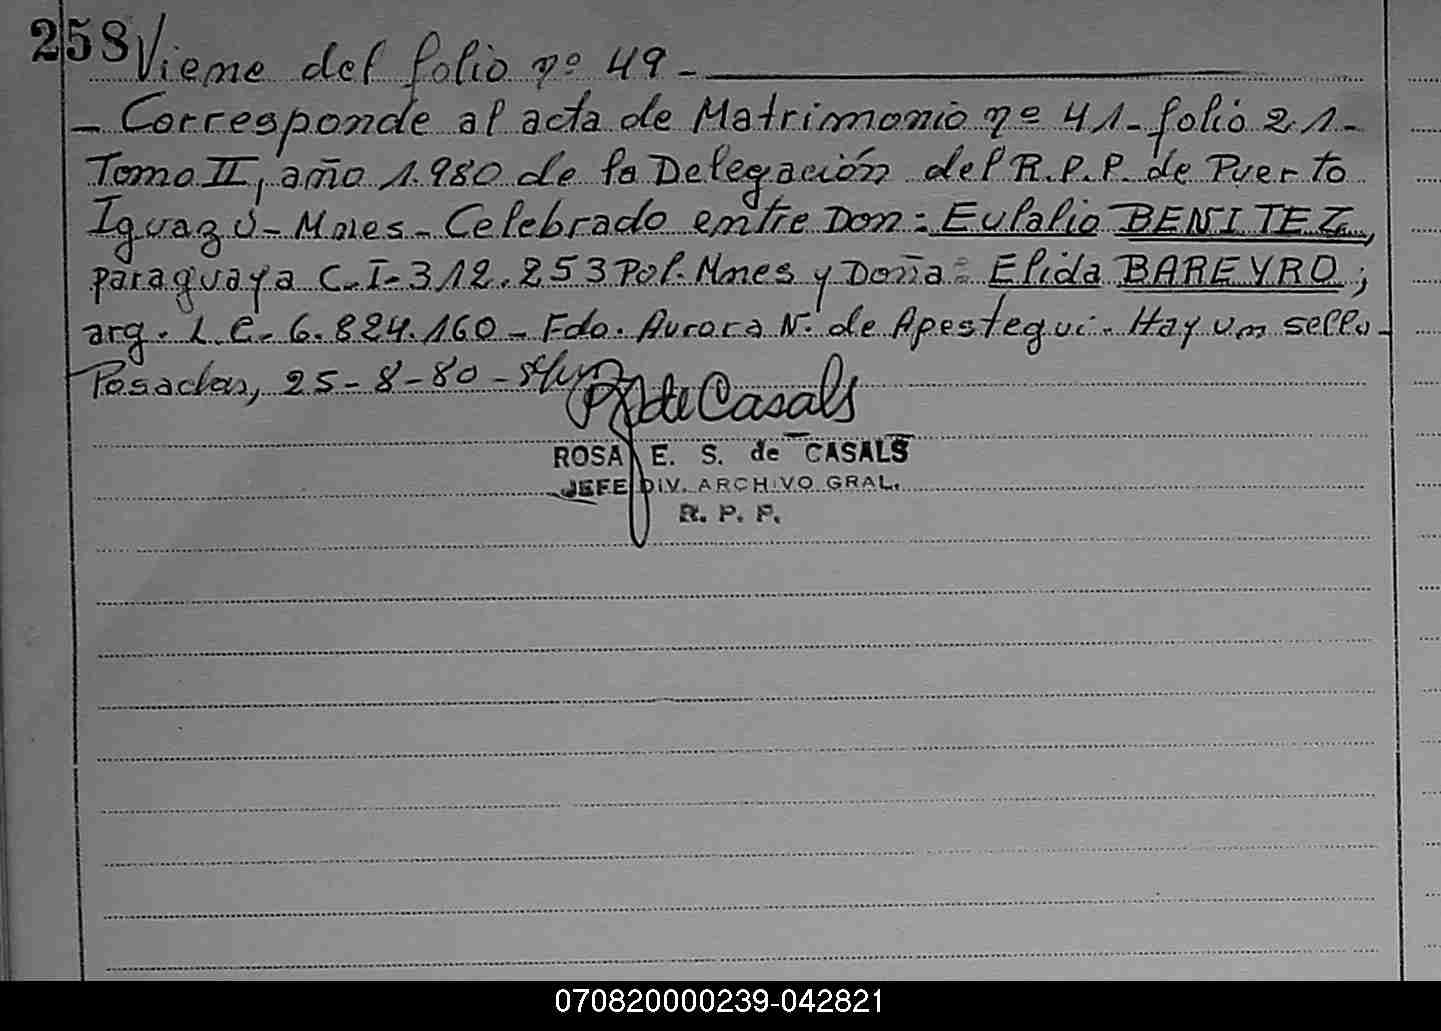 258 Viene del folio nº 49-
- Corresponde al acta de Matrimonio nº 41- folio 21-
Tomo II, año 1.980 de la Delegación del R.P.P. de Puerto
Iguazú- Mnes- Celebrado entre Don: Eulalio BENITEZ,
paraguaya C.I-312.253 Pol. Mnes y Doña: Elida BAREYRO;
arg. L.C. 6.824.160- Fdo. Aurora N. de Apestegui. Hay un sello-
Posadas, 25-8-80-
de Casals
ROSA E. S. de CASALS
JEFE DIV. ARCHIVO GRAL.
R. P. P.
070820000239-042821